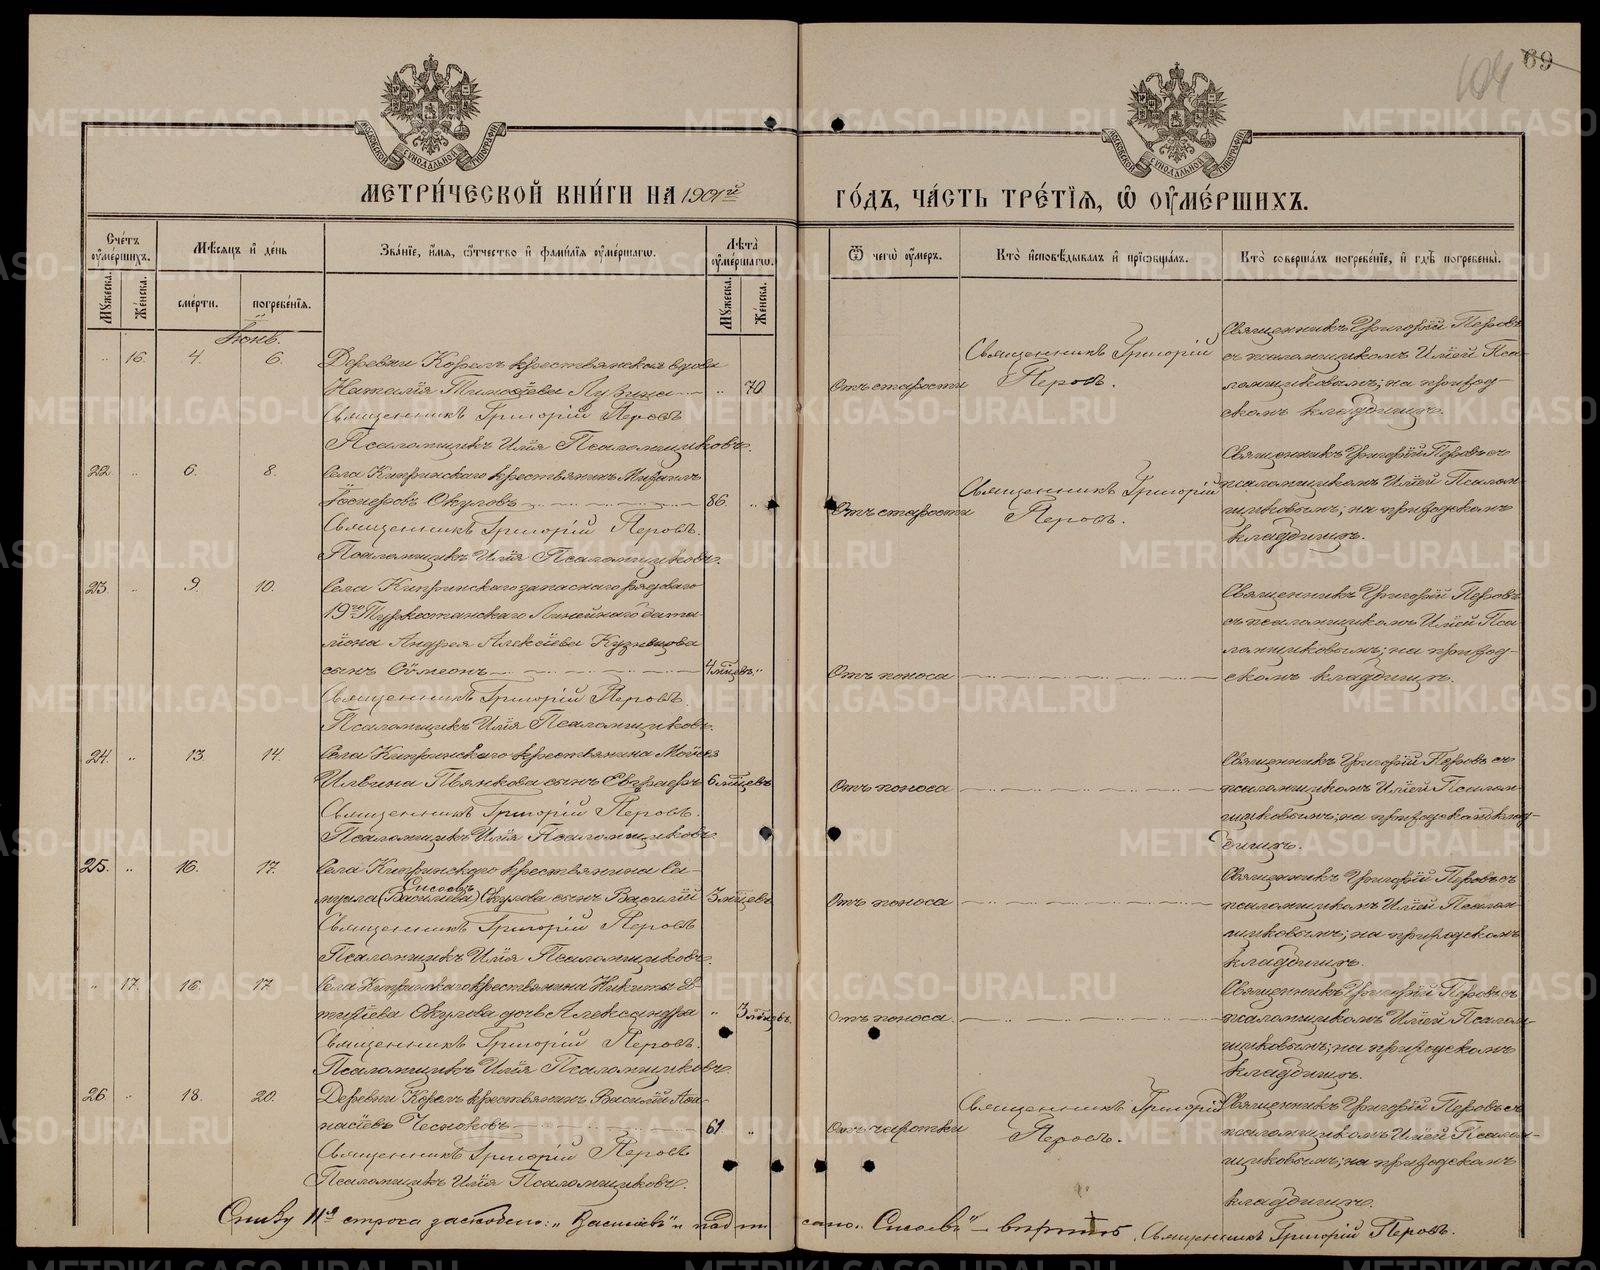 104 69
МЕТРИ́ЧЕСКОЙ КНИ́ГИ НА 1901й ГО́ДЪ, ЧА́СТЬ ТРЕ́ТІЯ, Ѿ ОУМЕ́РШИХЪ.
Сче́тъ оуме́ршихъ. Мѣсяцъ и день Зва́ніе, и́мя, о́тчество и фами́лія оуме́ршагѡ. Лѣта̀ оуме́ршагѡ. Ѿ чегѡ̀ оу́меръ. Кто̀ исповѣ́дывалъ и пріѡбща́лъ. Кто̀ соверша́лъ погребе́ніе, и гдѣ̀ погребены̀.
Мꙋжеска. Же́нска. сме́рти. погребе́нія. Мꙋжеска. Же́нска.
Іюнь.
„ 16. 4 6. Деревни Корелъ крестьянская вдова
Наталія Тимоѳеева Лузина „ 70.
Священникъ Григорій Перовъ
Псаломщикъ Илія Псаломщиковъ.
Отъ старости
Священникъ Григорій
Перовъ.
Священникъ Григорій Перовъ
съ псаломщикомъ Иліей Пса-
ломщиковымъ; на приход-
скомъ кладбищѣ.
22 „ 6. 8. Села Кипринскаго крестьянинъ Михаилъ
Окуловъ 86. „
Священникъ Григорій Перовъ.
Псаломщикъ Илія Псаломщиковъ.
Отъ старости
Священникъ Григорій
Перовъ.
Священникъ Григорій Перовъ съ
псаломщикомъ Иліей Псалом-
щиковымъ; на приходскомъ
кладбищѣ.
23. „ 9. 10. Села Кипринскаго запаснаго рядоваго
19го Туркестанскаго Линейнаго бата-
ліона Андрея Алексѣева Кузнецова
сынъ Сѵмеонъ 4 мѣцевъ „
Священникъ Григорій Перовъ.
Псаломщикъ Илія Псаломщиковъ.
Отъ поноса
Священникъ Григорій Перовъ
съ псаломщикомъ Иліей Пса-
ломщиковымъ; на приход-
скомъ кладбищѣ.
24. „ 13. 14. Села Кипринскаго крестьянина Моисея
Ильина Пьянкова сынъ 6 мѣцевъ
Священникъ Григорій Перовъ.
Псаломщикъ Илія Псаломщиковъ.
Отъ поноса
Священникъ Григорій Перовъ съ
псаломщикомъ Иліей Псалом-
щиковымъ; на приходскомъ клад-
бищѣ.
25. „ 16. 17. Села Кипринскаго крестьянина Са-
Сысоевъ
муила (Васильева) Окулова сынъ Василій 3 мѣцевъ
Священникъ Григорій Перовъ
Псаломщикъ Илія Псаломщиковъ.
Отъ поноса
Священникъ Григорій Перовъ съ
псаломщикомъ Иліей Псалом-
щиковымъ; на приходскомъ
кладбищѣ.
„ 17. 16. 17. Села Кипринскаго крестьянина Никиты Ев-
тихіева Окулова дочь Александра „ 3 мѣцевъ.
Священникъ Григорій Перовъ.
Псаломщикъ Илія Псаломщиковъ.
Отъ поноса.
Священникъ Григорій Перовъ съ
псаломщикомъ Иліей Псалом-
щиковымъ; на приходскомъ
кладбищѣ.
26 „ 18. 20. Деревни Корелъ крестьянинъ Василій Аѳа-
насіевъ Чесноковъ 61. „
Священникъ Григорій Перовъ
Псаломщикъ Илія Псаломщиковъ.
Отъ чахотки
Священникъ Григорій
Перовъ.
Священникъ Григорій Перовъ съ
псаломщикомъ Иліей Псалом-
щиковымъ; на приходскомъ
кладбищѣ.
Снизу 11я строка заскоблено: „Васильевъ" и надписано: „Сысоевъ" – вѣрить. Священникъ Григорій Перовъ.
METRIKI.GASO-URAL.RU